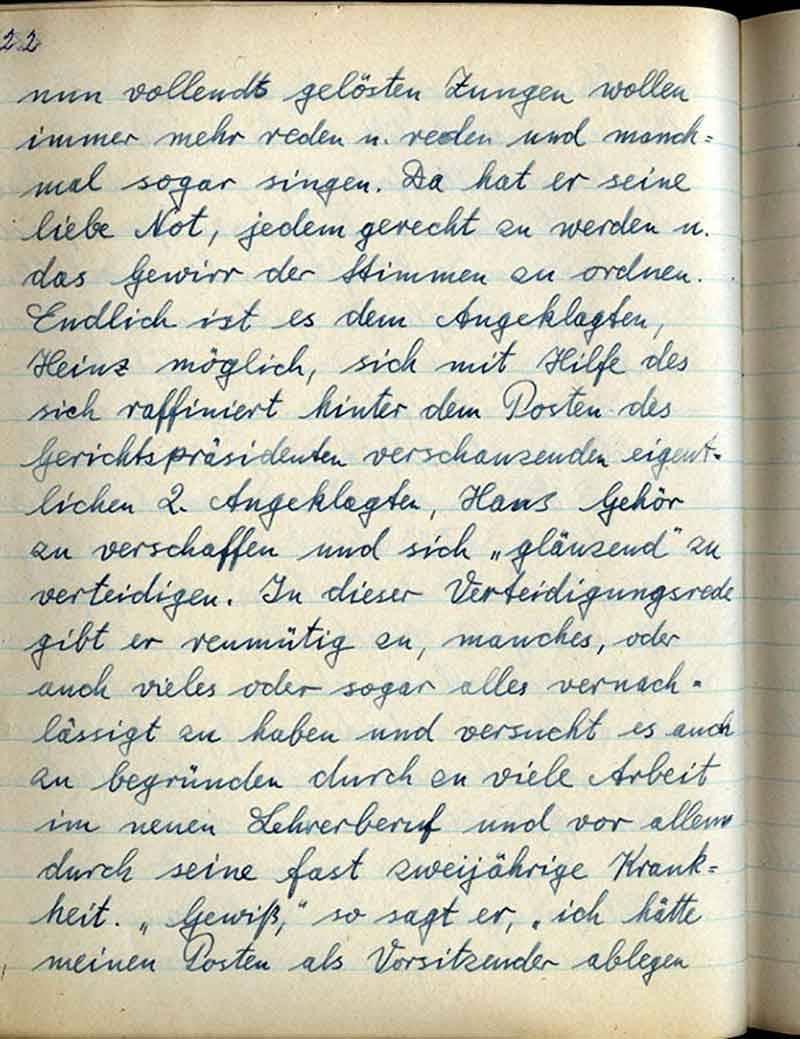 22
nun vollendts gelösten Zungen wollen
immer mehr reden u. reden und manch=
mal sogar singen. Da hat er seine
liebe Not, jedem gerecht zu werden u.
das Gewirr der Stimmen zu ordnen.
Endlich ist es dem Angeklagten,
Heinz möglich, sich mit Hilfe des
sich raffiniert hinter dem Posten des
Gerichtspräsidenten verschanzenden eigent-
lichen 2. Angeklagten, Hans Gehör
zu verschaffen und sich „glänzend" zu
verteidigen. In dieser Verteidigungsrede
gibt er reumütig zu, manches, oder
auch vieles oder sogar alles vernach-
lässigt zu haben und versucht es auch
zu begründen durch zu viele Arbeit
im neuen Lehrerberuf und vor allem
durch seine fast zweijährige Krank=
heit. „Gewiß," so sagt er, „ich hätte
meinen Posten als Vorsitzender ablegen